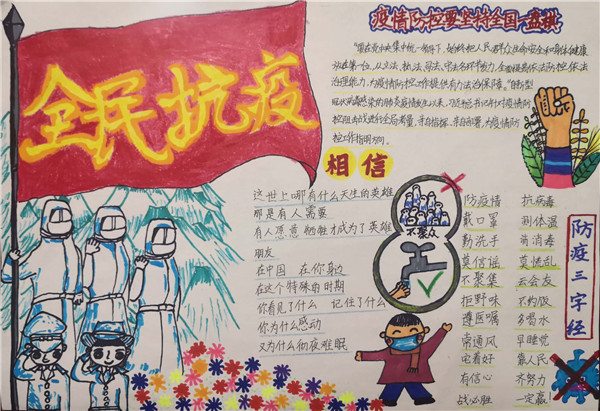 全民抗疫
疫情防控要坚持全国一盘棋
"要在党中央集中统一领导下,始终把人民群众生命安全和身体健康
放在第一位,从立法、执法、司法、守法各环节发力,全面提高依法防控、依法
治理能力,为疫情防控工作提供有力法治保障。"自新型
冠状病毒感染的肺炎疫情发生以来,习近平总书记对疫情防
控阻击战进行全局考量,亲自指挥、亲自部署,为疫情防
控工作指明方向。
相信
这世上哪有什么天生的英雄
那是有人需要
有人愿意牺牲才成为了英雄
朋友
在中国 在你身边
在这个特殊的时期
你看见了什么 记住了什么
你为什么感动
又为什么彻夜难眠
不聚众
防疫三字经
防疫情 抗病毒
戴口罩 测体温
勤洗手 莫慌乱
莫信谣 云会友
不聚集 不约饭
拒野味 多喝水
遵医嘱 早睡觉
常通风 靠人民
宅着好 齐努力
有信心 一定赢!
战必胜